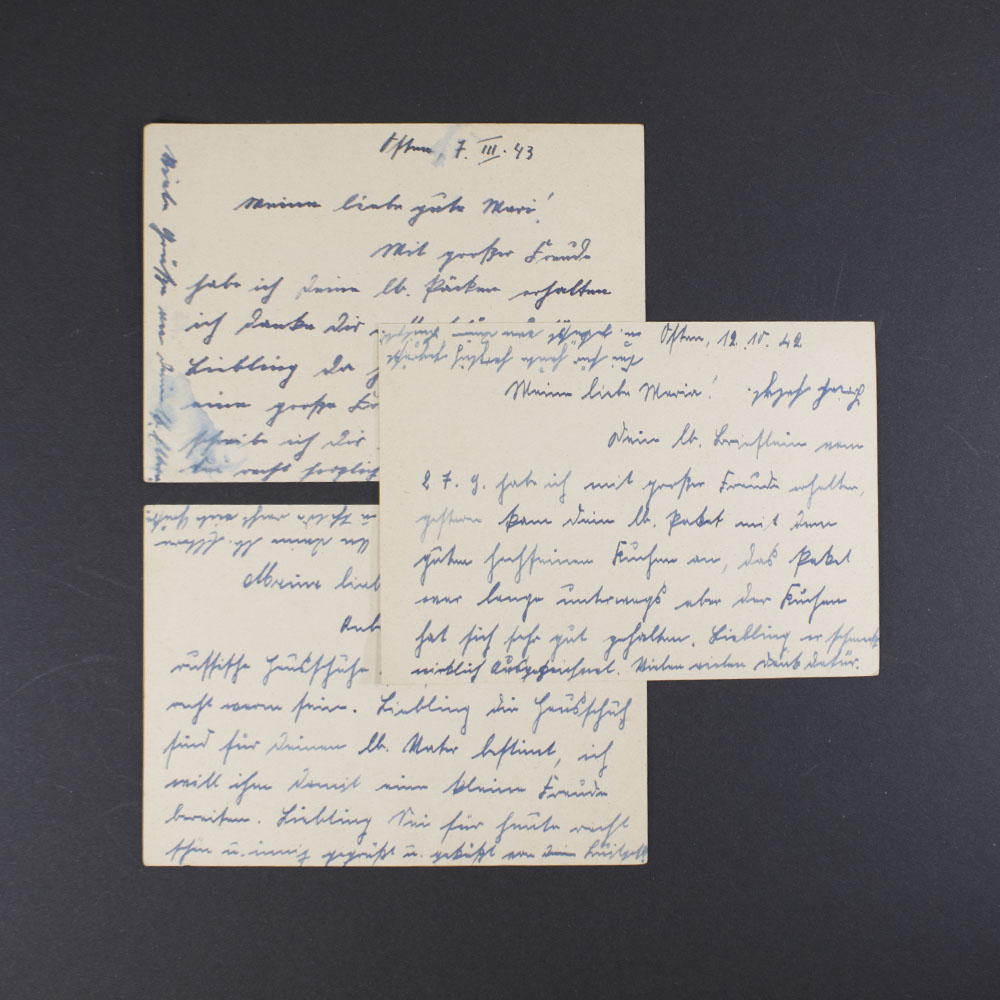 Osten, 7. III. 43
Meine liebe gute Mari!
Mit großer Freude
habe ich Deine lb. Päcken erhalten
ich danke Dir
Liebling da
eine große
schreibe ich Dir
recht herzlich
Viele Grüße an Deine lb. Eltern
Osten, 12. 10. 42
Meine liebe Maria!
Dein lb. Brieflein vom
27. 9. habe ich mit großer Freude erhalten,
gestern kam Dein lb. Paket mit dem
guten hochfeinen Kuchen an, das Paket
war lange unterwegs aber der Kuchen
hat sich sehr gut gehalten. Liebling er schmeckt
wirklich Ausgezeichnet. Vielen vielen Dank dafür.
An Deine lb. Eltern
Meine lieb
russische Hausschuhe
recht warm sein. Liebling die Hausschuh
sind für Deinen lb. Vater bestimt, ich
will ihm damit eine kleine Freude
bereiten. Liebling Sei für heute recht
schön u. innig gegrüßt u. geküßt von Dein